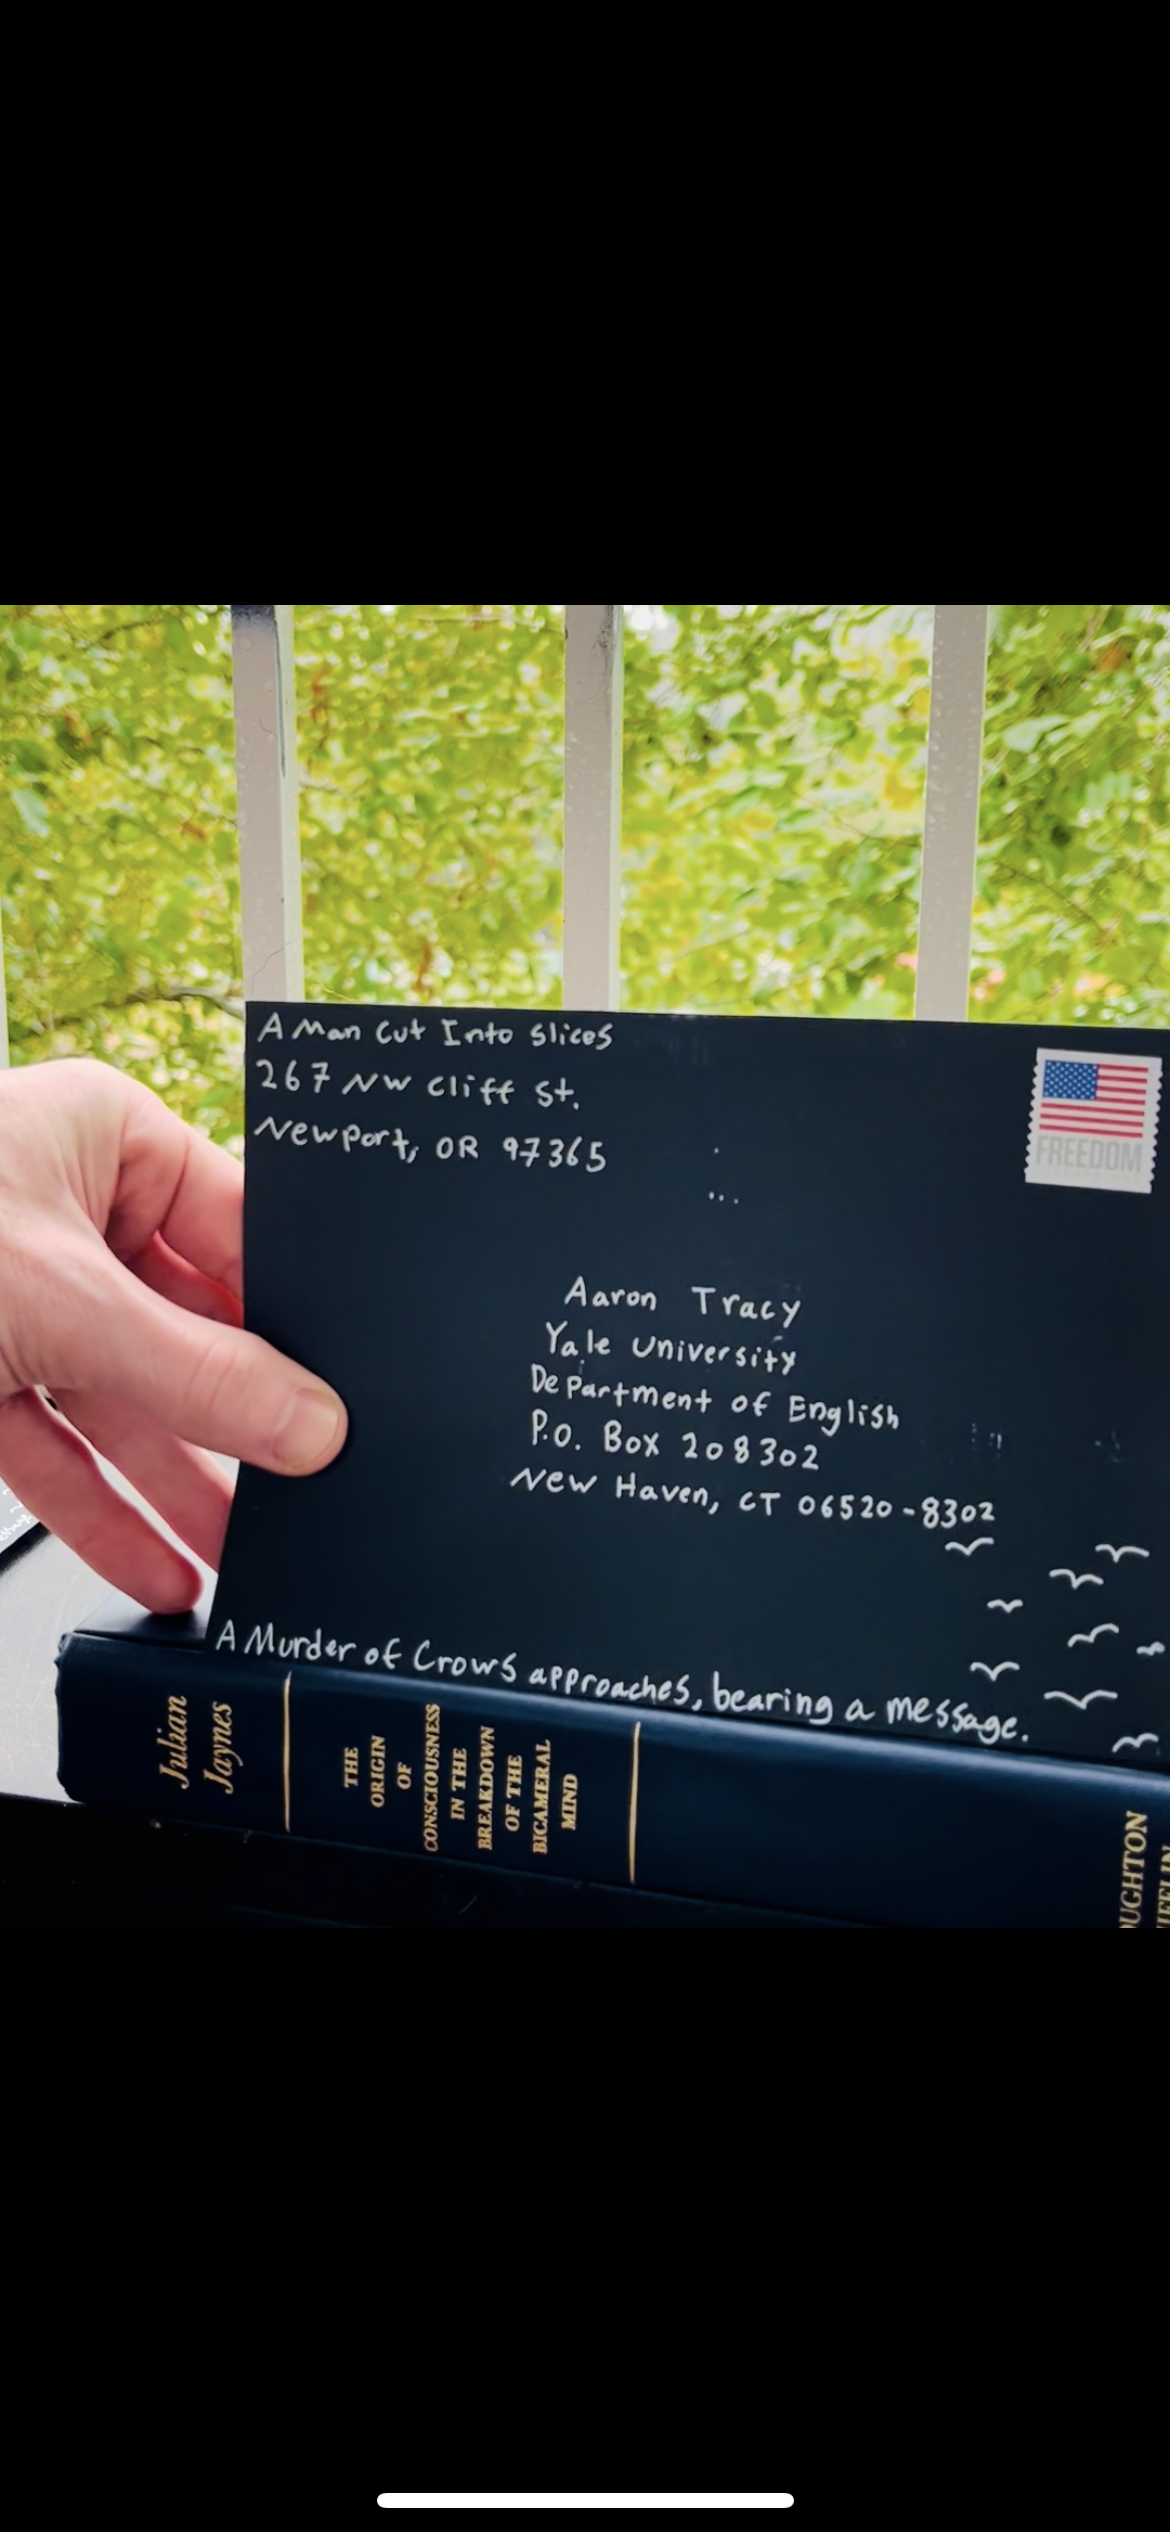 A Man Cut Into Slices
267 NW Cliff St.
Newport, OR 97365
FREEDOM
Aaron Tracy
Yale University
Department of English
P.O. Box 208302
New Haven, CT 06520-8302
A Murder of Crows approaches, bearing a message.
Julian
Jaynes
THE
ORIGIN
OF
CONSCIOUSNESS
IN THE
BREAKDOWN
OF THE
BICAMERAL
MIND
OUGHTON